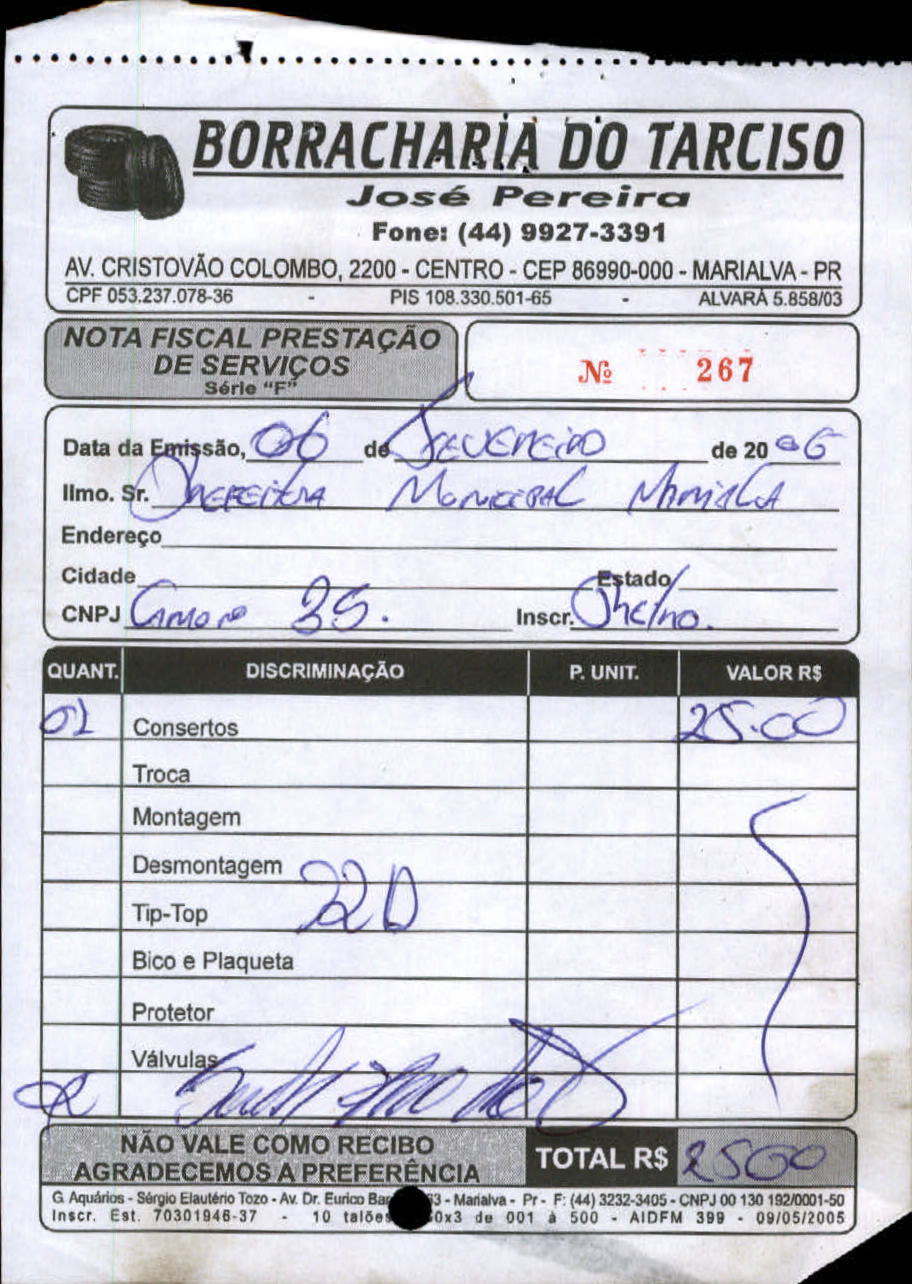 BORRACHARIA DO TARCISO
José Pereira
Fone: (44) 9927-3391
AV. CRISTOVÃO COLOMBO, 2200 - CENTRO - CEP 86990-000 - MARIALVA - PR
CPF 053.237.078-36 - PIS 108.330.501-65 - ALVARÁ 5.858/03
NOTA FISCAL PRESTAÇÃO
DE SERVIÇOS
Série "F"
Nº 267
Data da Emissão, 06 de FEVEREIRO de 2006
Ilmo. Sr. PREFEITURA MUNICIPAL MARIALVA
Endereço
Cidade Estado
CNPJ 35. Inscr.
QUANT. DISCRIMINAÇÃO P. UNIT. VALOR R$
01 Consertos 25.00
Troca
Montagem
Desmontagem
22D
Tip-Top
Bico e Plaqueta
Protetor
Válvulas
NÃO VALE COMO RECIBO
AGRADECEMOS A PREFERÊNCIA
TOTAL R$ 2500
G. Aquários - Sérgio Elautério Tozo - Av. Dr. Eurico 63 - Marialva - Pr - F: (44) 3232-3405 - CNPJ 00 130 192/0001-50
Inscr. Est. 70301946-37 - 10 talões 0x3 de 001 à 500 - AIDFM 399 - 09/05/2005